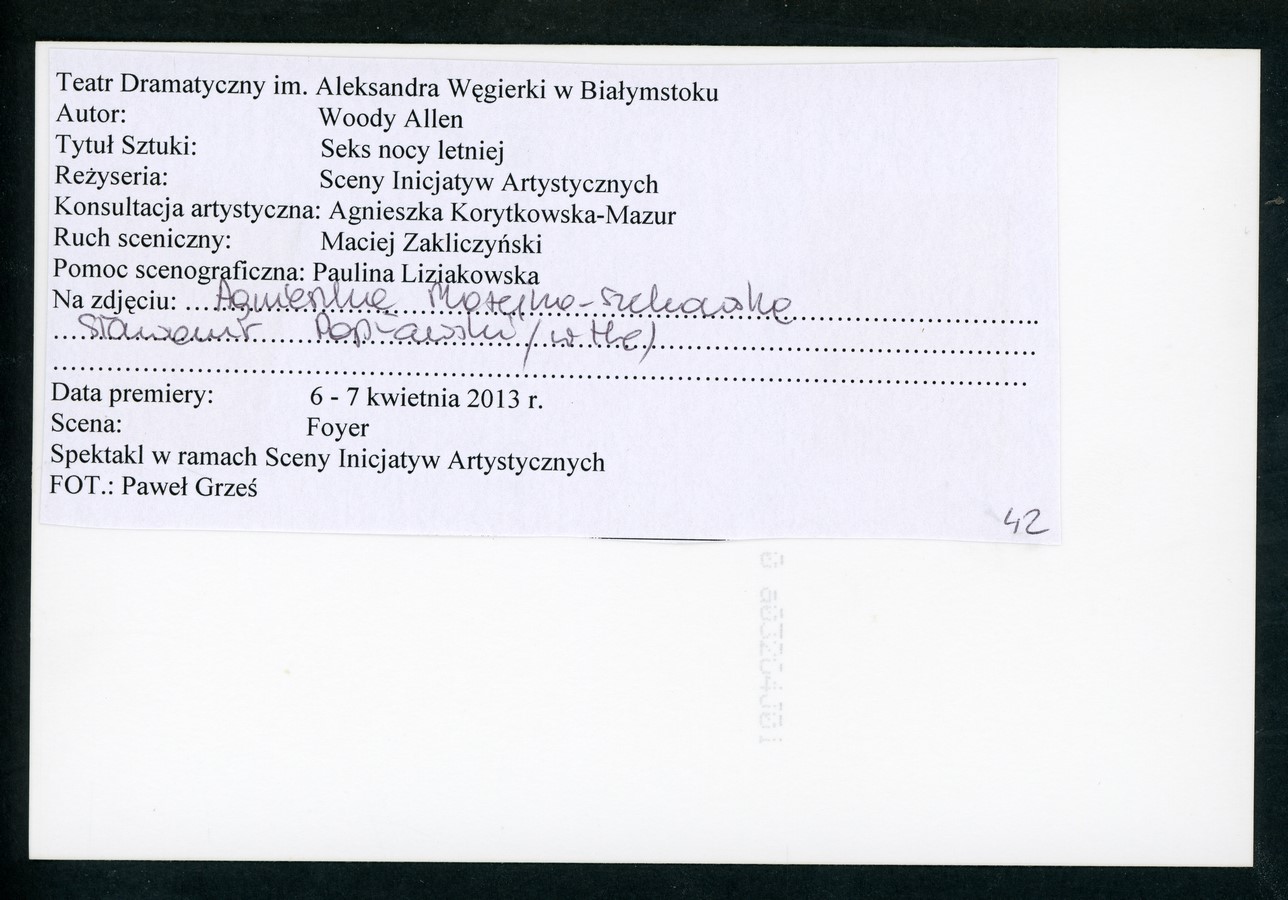 Teatr Dramatyczny im. Aleksandra Węgierki w Białymstoku
Autor: Woody Allen
Tytuł Sztuki: Seks nocy letniej
Reżyseria: Sceny Inicjatyw Artystycznych
Konsultacja artystyczna: Agnieszka Korytkowska-Mazur
Ruch sceniczny: Maciej Zakliczyński
Pomoc scenograficzna: Paulina Liziakowska
Na zdjęciu: Agnieszka Możejko-Szekowska
Sławomir Popławski (w tle)
Data premiery: 6 - 7 kwietnia 2013 r.
Scena: Foyer
Spektakl w ramach Sceny Inicjatyw Artystycznych
FOT.: Paweł Grześ
42